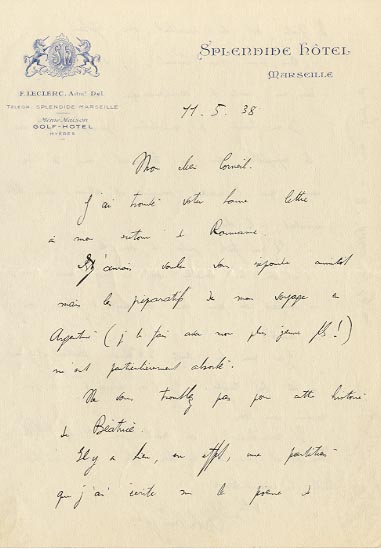 SPLENDIDE HÔTEL
MARSEILLE
F. LECLERC, Admr Del.
TELEGR. SPLENDIDE MARSEILLE
Même Maison
GOLF-HOTEL
HYÈRES
11. 5. 38
Mon cher
J'ai trouvé votre bonne lettre
à mon retour de Roumanie.
J'aurais voulu vous répondre aussitôt
mais les préparatifs de mon voyage en
Argentine (je le fais avec mon plus jeune fils!)
m'ont particulièrement absorbé.
Ne vous troublez pas pour cette histoire
de Béatrice.
Il y a bien, en effet, une partition
que j'ai écrite sur le poème de